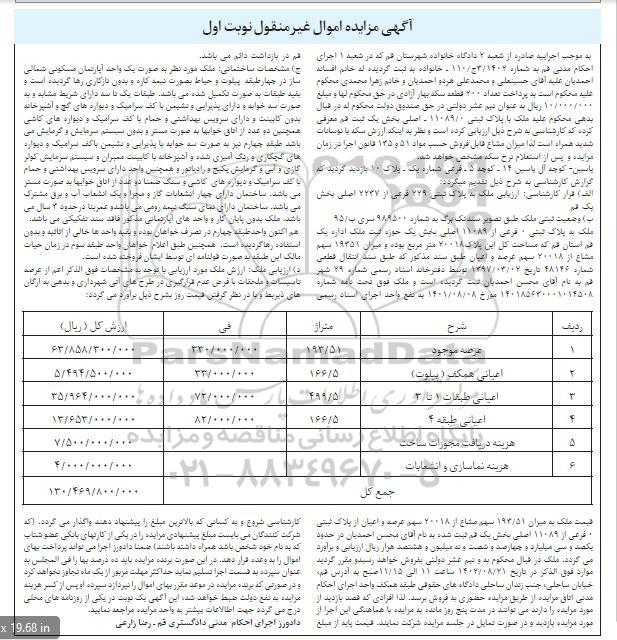 آگهی مزایده اموال غیر منقول نوبت اول
به موجب اجراییه صادره از شعبه ۲ دادگاه خانواده شهرستان قم که در شعبه ۱ اجرای
احکام مدنی قم به شماره ۱۱۰/ج/۳/۱۴۰۲ ـ خانواده به ثبت گردیده له خانم افسانه
احمدیان علیه آقای حسینعلی و محمدعلی هردو احمدیان و خانم زهرا محمدی محکوم
علیه محکوم است به پرداخت تعداد ۷۰۰ قطعه سکه بهار آزادی در حق محکوم لها و مبلغ
۱۰/۰۰۰/۰۰۰ ریال به عنوان نیم عشر دولتی در حق صندوق دولت محکوم له در قبال
بدهی محکوم علیه ملک با پلاک ثبتی ۱۱۰۸۹/۰ ـ اصلی بخش یک ثبت قم معرفی
کرده که کارشناسی به شرح ذیل ارزیابی کرده است و نظر به اینکه ارزش سکه با نوسانات
شدید همراه است لذا میزان مشاع قابل فروش حسب مواد ۵۱ و ۱۳۵ قانون اجرا در زمان
مزایده و پس از استعلام نرخ سکه مشخص خواهد شد.
یاسین- کوچه آل یاسین ۱۴ ـ کوچه ۵ ـ فرعی شماره یک ـ پلاک ۱۰ بازدید گردید که
گزارش کارشناسی به شرح ذیل تقدیم میگردد:
الف) قرار کارشناسی: ارزیابی ملک به پلاک ثبتی ۲۲۹ فرعی از ۲۲۳۷ اصلی بخش
یک قم
ب) وضعیت ثبتی ملک طبق تصویر سندتک برگ به شماره ۹۸۹۵۰۰ سری ب/۹۵
ملک به پلاک ثبتی ۰ فرعی از ۱۱۰۸۹ اصلی بخش یک حوزه ثبت ملک اداره یک
قم استان قم که مساحت کل این پلاک ۲۰۰۱۸ متر مربع بوده و میزان ۱۹۳۵۱ سهم
مشاع از ۲۰۰۱۸ سهم عرصه و اعیان طبق سند مذکور که طبق سند انتقال قطعی
شماره ۴۸۱۴۶ تاریخ ۱۳۹۷/۰۳/۰۲ توسط دفترخانه اسناد رسمی شماره ۲۹ شهر
قم به نام آقای محسن احمدیان ثبت گردیده است و ملک فوق تحت نامه شماره
۱۴۰۱۸۵۶۳۰۰۰۱۰۱۴۵۰۸ مورخ ۱۴۰۱/۰۸/۰۸ به نفع واحد اجرای اسناد رسمی
قم در بازداشت دائم می باشد.
ج) مشخصات ساختمانی: ملک مورد نظر به صورت یک واحد آپارتمان مسکونی شمالی
ساز در چهارطبقه پیلوت و حیاط بصورت نیمه کاره و بدون نازکاری رها گردیده است و
بقیه طبقات به صورت تکمیل شده می باشد. طبقات یک تا سه دارای شرایط مشابه و به
صورت سه خوابه و دارای پذیرایی و نشیمن با کف سرامیک و دیواره های گچ و آشپزخانه
بدون کابینت و دارای سرویس بهداشتی و حمام با کف سرامیک و دیواره های کاشی
همچنین دو عدد از اتاق خوابها به صورت مستر و بدون سیستم سرمایش و گرمایش می
باشد طبقه چهارم نیز به صورت سه خوابه با پذیرایی و نشیمن باکف سرامیک و دیواره
های گچکاری و رنگ آمیزی شده و آشپزخانه با کابینت ممبران و سیستم سرمایش کولر
گازی و آبی و گرمایش پکیج و رادیاتور و همچنین واحد دارای سرویس بهداشتی و حمام
با کف سرامیک و دیواره های کاشی و سنگ ضمنا دو عدد از اتاق خوابها به صورت مستر
می باشد. ساختمان دارای چهار انشعابات گاز و مجزا و یک انشعاب آب و برق مشترک
می باشد. ساختمان دارای نمای سنگ نیمه رومی می باشدو عمربنا در حدود ۲ سال می
باشد. ملک بدون پایان کار و واحد های آپارتمانی مذکور فاقد سند تفکیکی می باشد.
هم اکنون واحدطبقه چهارم در تصرف خواهان بوده و بقیه واحد ها خالی از اثاثیه و بدون
استفاده رهاگردیده است. همچنین طبق اعلام خواهان واحد طبقه سوم در زمان حیات
مالک این طبقه به صورت قولنامه ای توسط ایشان فروخته شده است.
د) ارزیابی ملک: ارزش ملک مورد ارزیابی با توجه به مشخصات فوق الذکر اعم از عرصه
تاسیسات و ملحقات با فرض عدم قرارگیری در طرح های آتی شهرداری و بدهی به ارگان
های ذیربط و با در نظر گرفتن قیمت روز بشرح ذیل برآورد می گردد:
ردیف شرح متراژ فی ارزش کل (ریال)
۱ عرصه موجود ۱۹۳/۵۱ ۳۳۰/۰۰۰/۰۰۰ ۶۳/۸۵۸/۳۰۰/۰۰۰
۲ اعیانی همکف (پیلوت) ۱۶۶/۵ ۳۳/۰۰۰/۰۰۰ ۵/۴۹۴/۵۰۰/۰۰۰
۳ اعیانی طبقات ۱ تا ۳ ۴۹۹/۵ ۷۲/۰۰۰/۰۰۰ ۳۵/۹۶۴/۰۰۰/۰۰۰
۴ اعیانی طبقه ۴ ۱۶۶/۵ ۸۲/۰۰۰/۰۰۰ ۱۳/۶۵۳/۰۰۰/۰۰۰
۵ هزینه دریافت مجوزات ساخت ۷/۵۰۰/۰۰۰/۰۰۰
۶ هزینه نماسازی و انشعابات ۴/۰۰۰/۰۰۰/۰۰۰
جمع کل ۱۳۰/۴۶۹/۸۰۰/۰۰۰
قیمت ملک به میزان ۱۹۳/۵۱ سهم مشاع از ۲۰۰۱۸ سهم عرصه و اعیان از پلاک ثبتی
۰ فرعی از ۱۱۰۸۹ اصلی بخش یک قم ثبت شده به نام آقای محسن احمدیان در حدود
یکصد و سی میلیارد و چهارصد و شصت و نه میلیون و هشتصد هزار ریال ارزیابی و برآورد
می گردد. ملک در قبال محکوم به و نیم عشر دولتی بفروش خواهد رسیدو مقرر گردید
موارد فوق الذکر در تاریخ ۱۴۰۲/۰۸/۲۱ ساعت ۱۱ الی ۱۱/۱۵صبح به آدرس قم،
خیابان ساحلی، جنب زندان ساحلی دادگاه های حقوقی طبقه همکف واحد اجرای احکام
مدنی اتاق مزایده از طریق مزایده حضوری به فروش برسد. لذا افرادی که قصد بازدید از
مورد مزایده را دارند می توانند در مدت پنج روز مانده به مزایده با هماهنگی این اجرا از
مورد مزایده بازدید و در صورت تمایل در جلسه مزایده شرکت نمایند. قیمت پایه از مبلغ
کارشناسی شروع و به کسانی که بالاترین مبلغ را پیشنهاد دهند واگذار می گردد. (که
شرکت کنندگان می بایست مبلغ پیشنهادی مزایده را در یکی از کارتهای بانکی عضو شتاب
که به نام خود شخص باشد همراه داشته باشند) ضمنا دادورز اجرا می تواند پرداخت بهای
اموال را به وعده قرار دهد. در این صورت برنده مزایده باید ده درصد بها را فی المجلس به
عنوان سپرده به قسمت اجرا تسلیم نماید حداکثر مهلت مزبور از یک ماه تجاوز نخواهد کرد
و در صورتی که برنده مزایده در موعد مقرر بهای اموال را نپردازد سپرده او پس از کسر هزینه
مزایده به نفع دولت ضبط خواهد شد، این آگهی یک نوبت در یکی از روزنامه های محلی
درج می گردد جهت اطلاعات بیشتر به واحد مزایده مراجعه نمایید.
دادورز اجرای احکام مدنی دادگستری قم ـ رضا زارعی
ParsNamadData
پایگاه اطلاع رسانی مناقصه و مزایده
۰۲۱-۸۸۳۴۹۶۷۰-۵
x 19.68 in